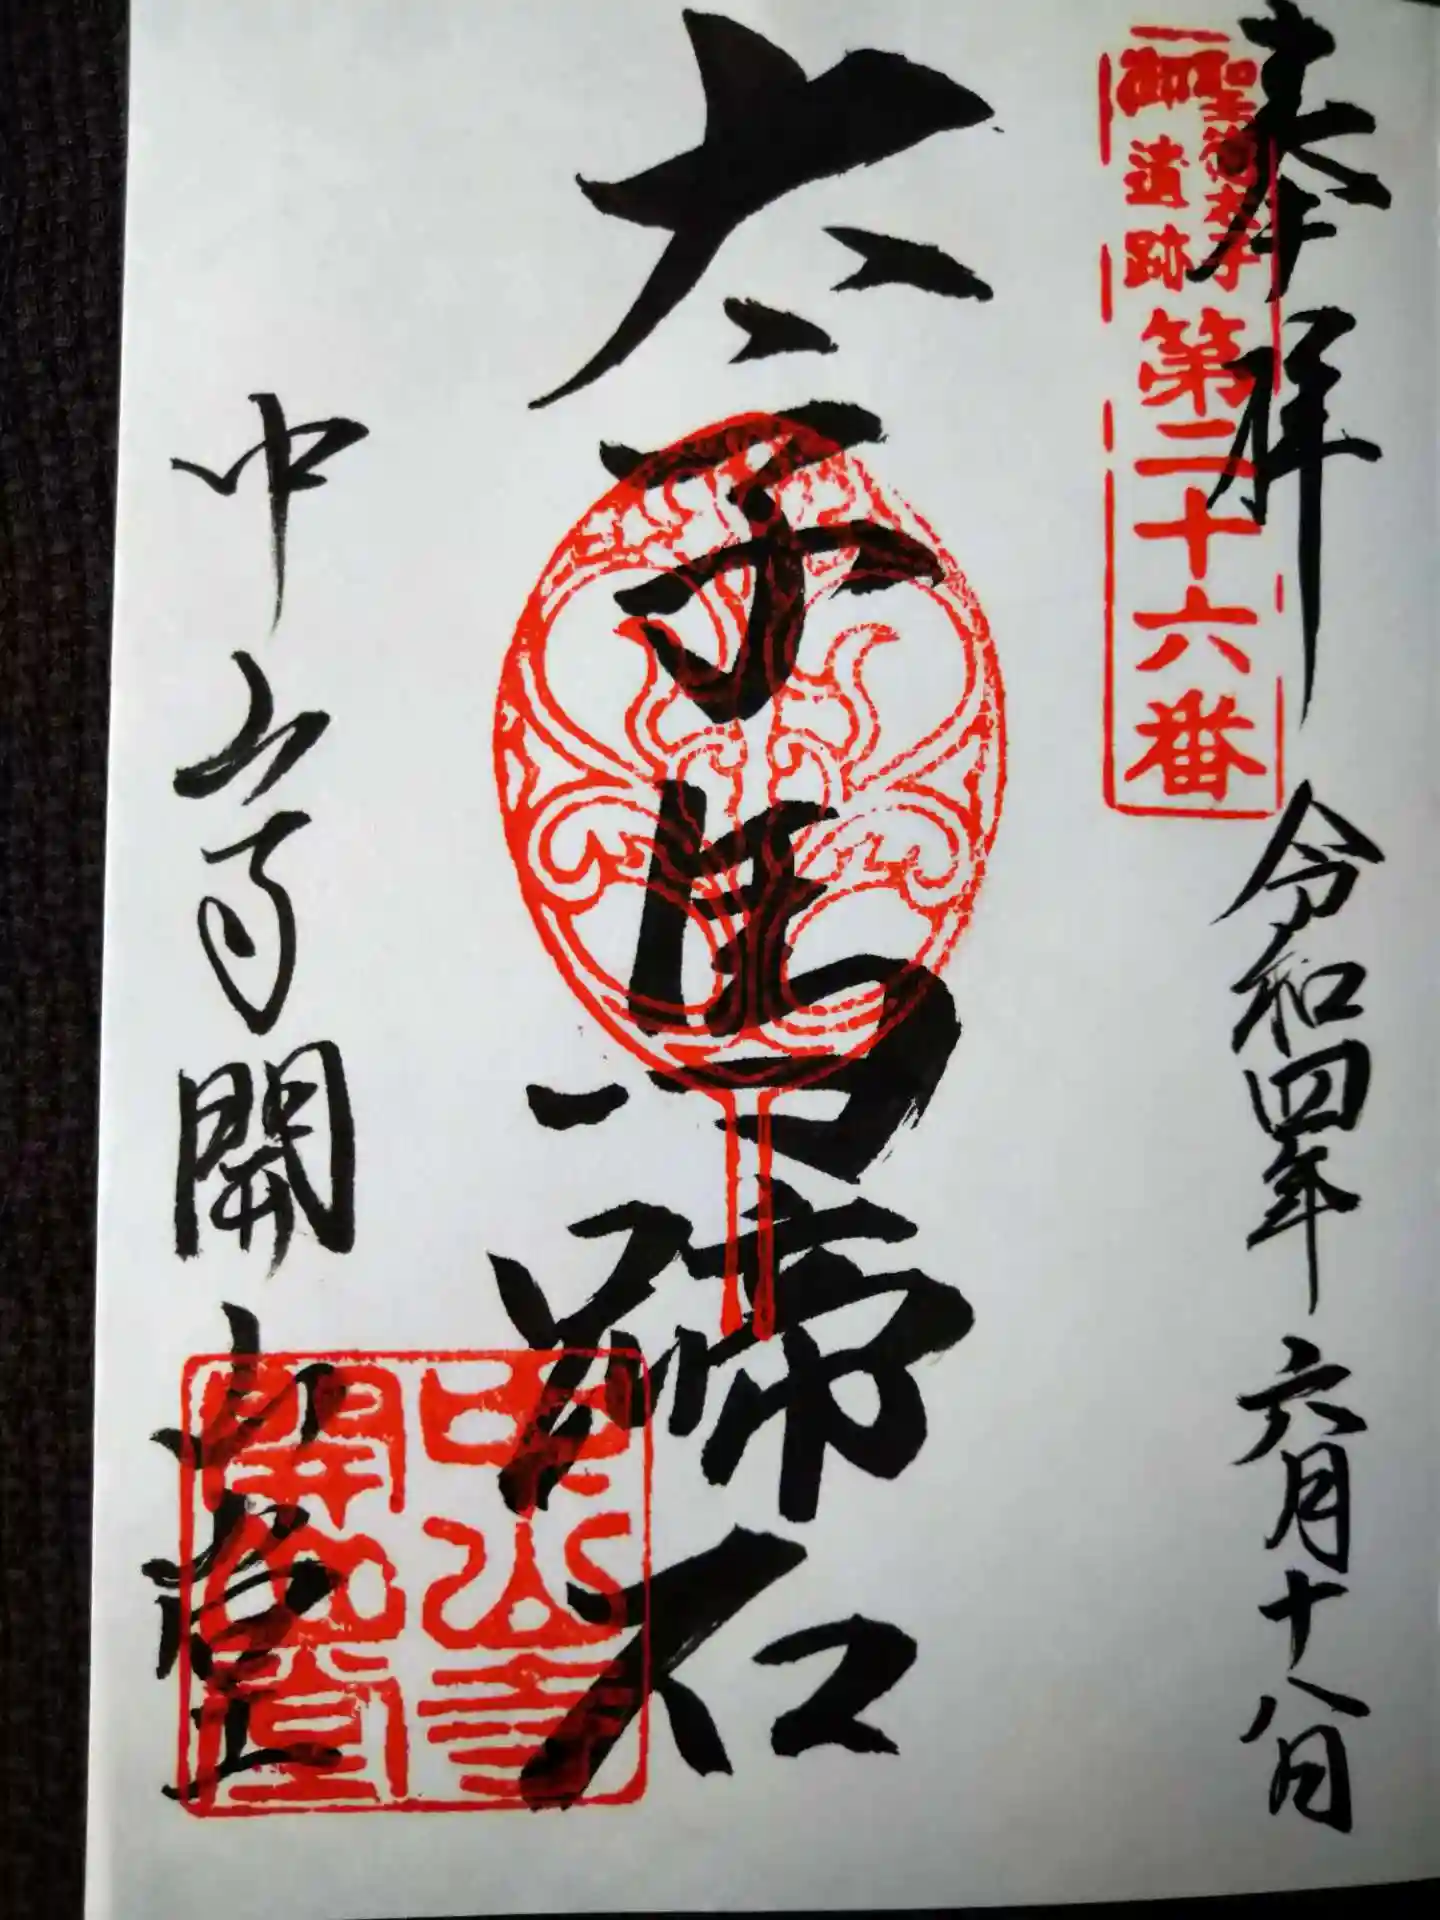 奉拝 令和四年六月十八日
聖徳太子
御遺跡
第二十六番
太子馬蹄石
中山寺開山堂
中山寺
開山堂